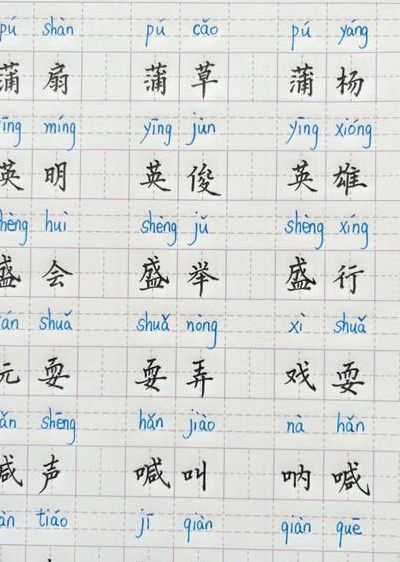 pú shàn pú cǎo pú yáng
蒲扇 蒲草 蒲杨
yīng míng yīng jùn yīng xióng
英明 英俊 英雄
shèng huì shèng jǔ shèng xíng
盛会 盛举 盛行
shuǎ shuǎ nòng xì shuǎ
耍 耍弄 戏耍
hǎn shēng hǎn jiào nà hǎn
喊声 喊叫 呐喊
tiáo jī qiàn qiàn quē